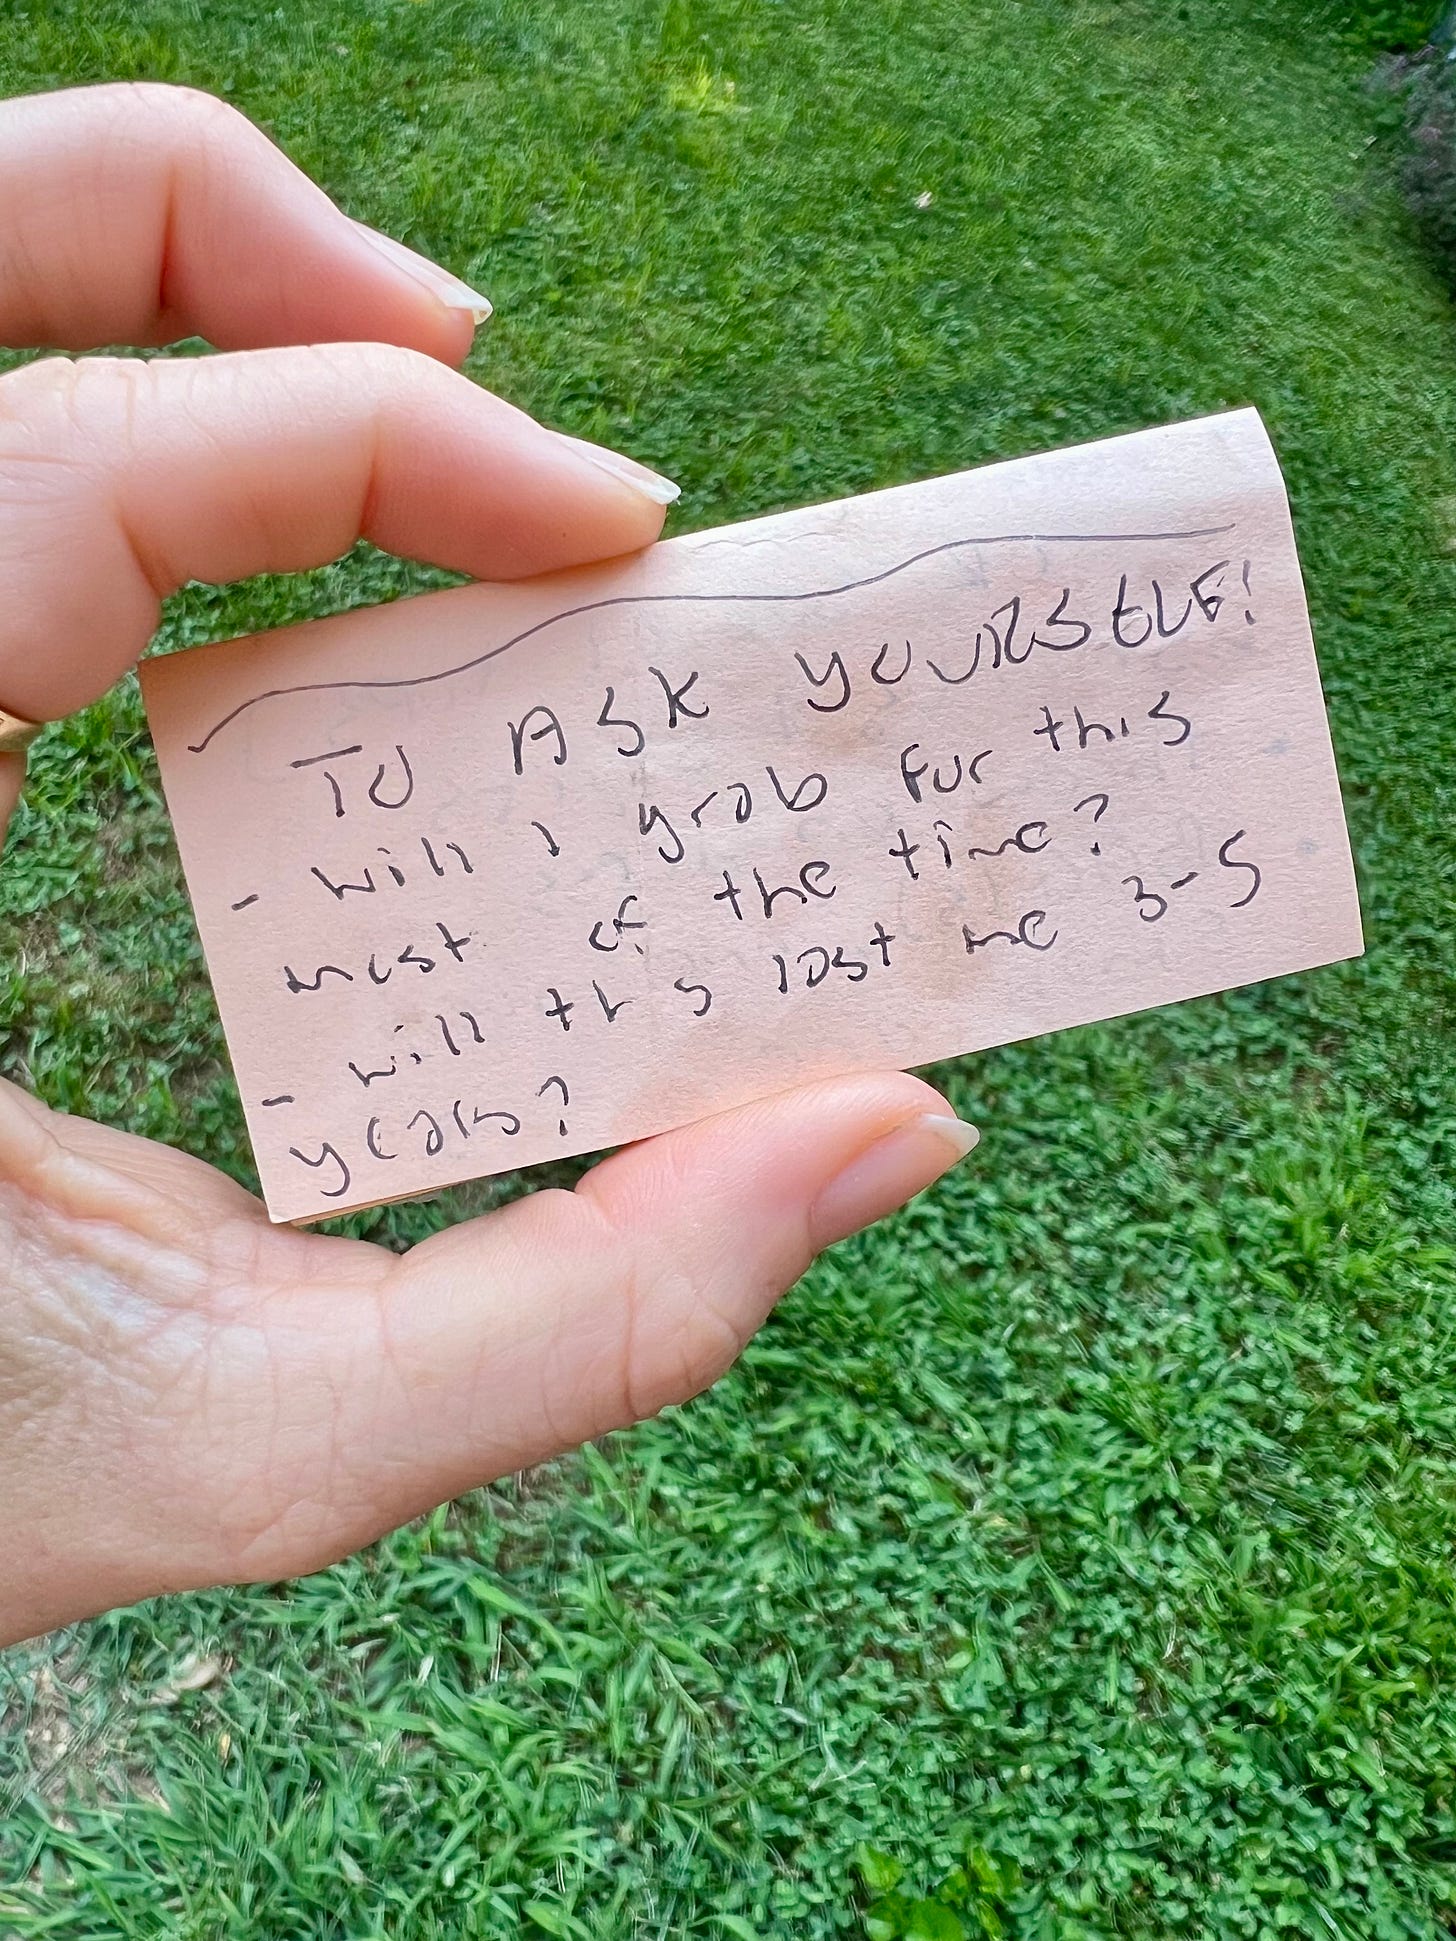 TO ASK YOURSELF!
- will I grab for this
most of the time?
- will this last me 3-5
years?